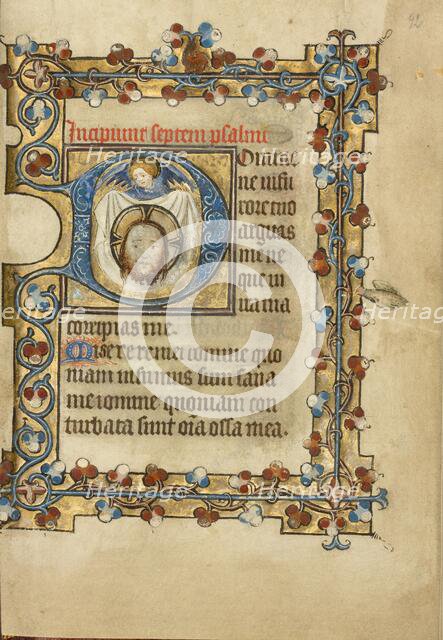 92
Incipiunt septem psalmi
Domine
ne in fu
rore tuo
arguas
me ne
que in
ira tua
corripias me.
Miserere mei domine quo
niam infirmus sum sana
me domine quoniam con
turbata sunt oia ossa mea.
Heritage
Heritage
Heritage
Heritage
Heritage
Heritage